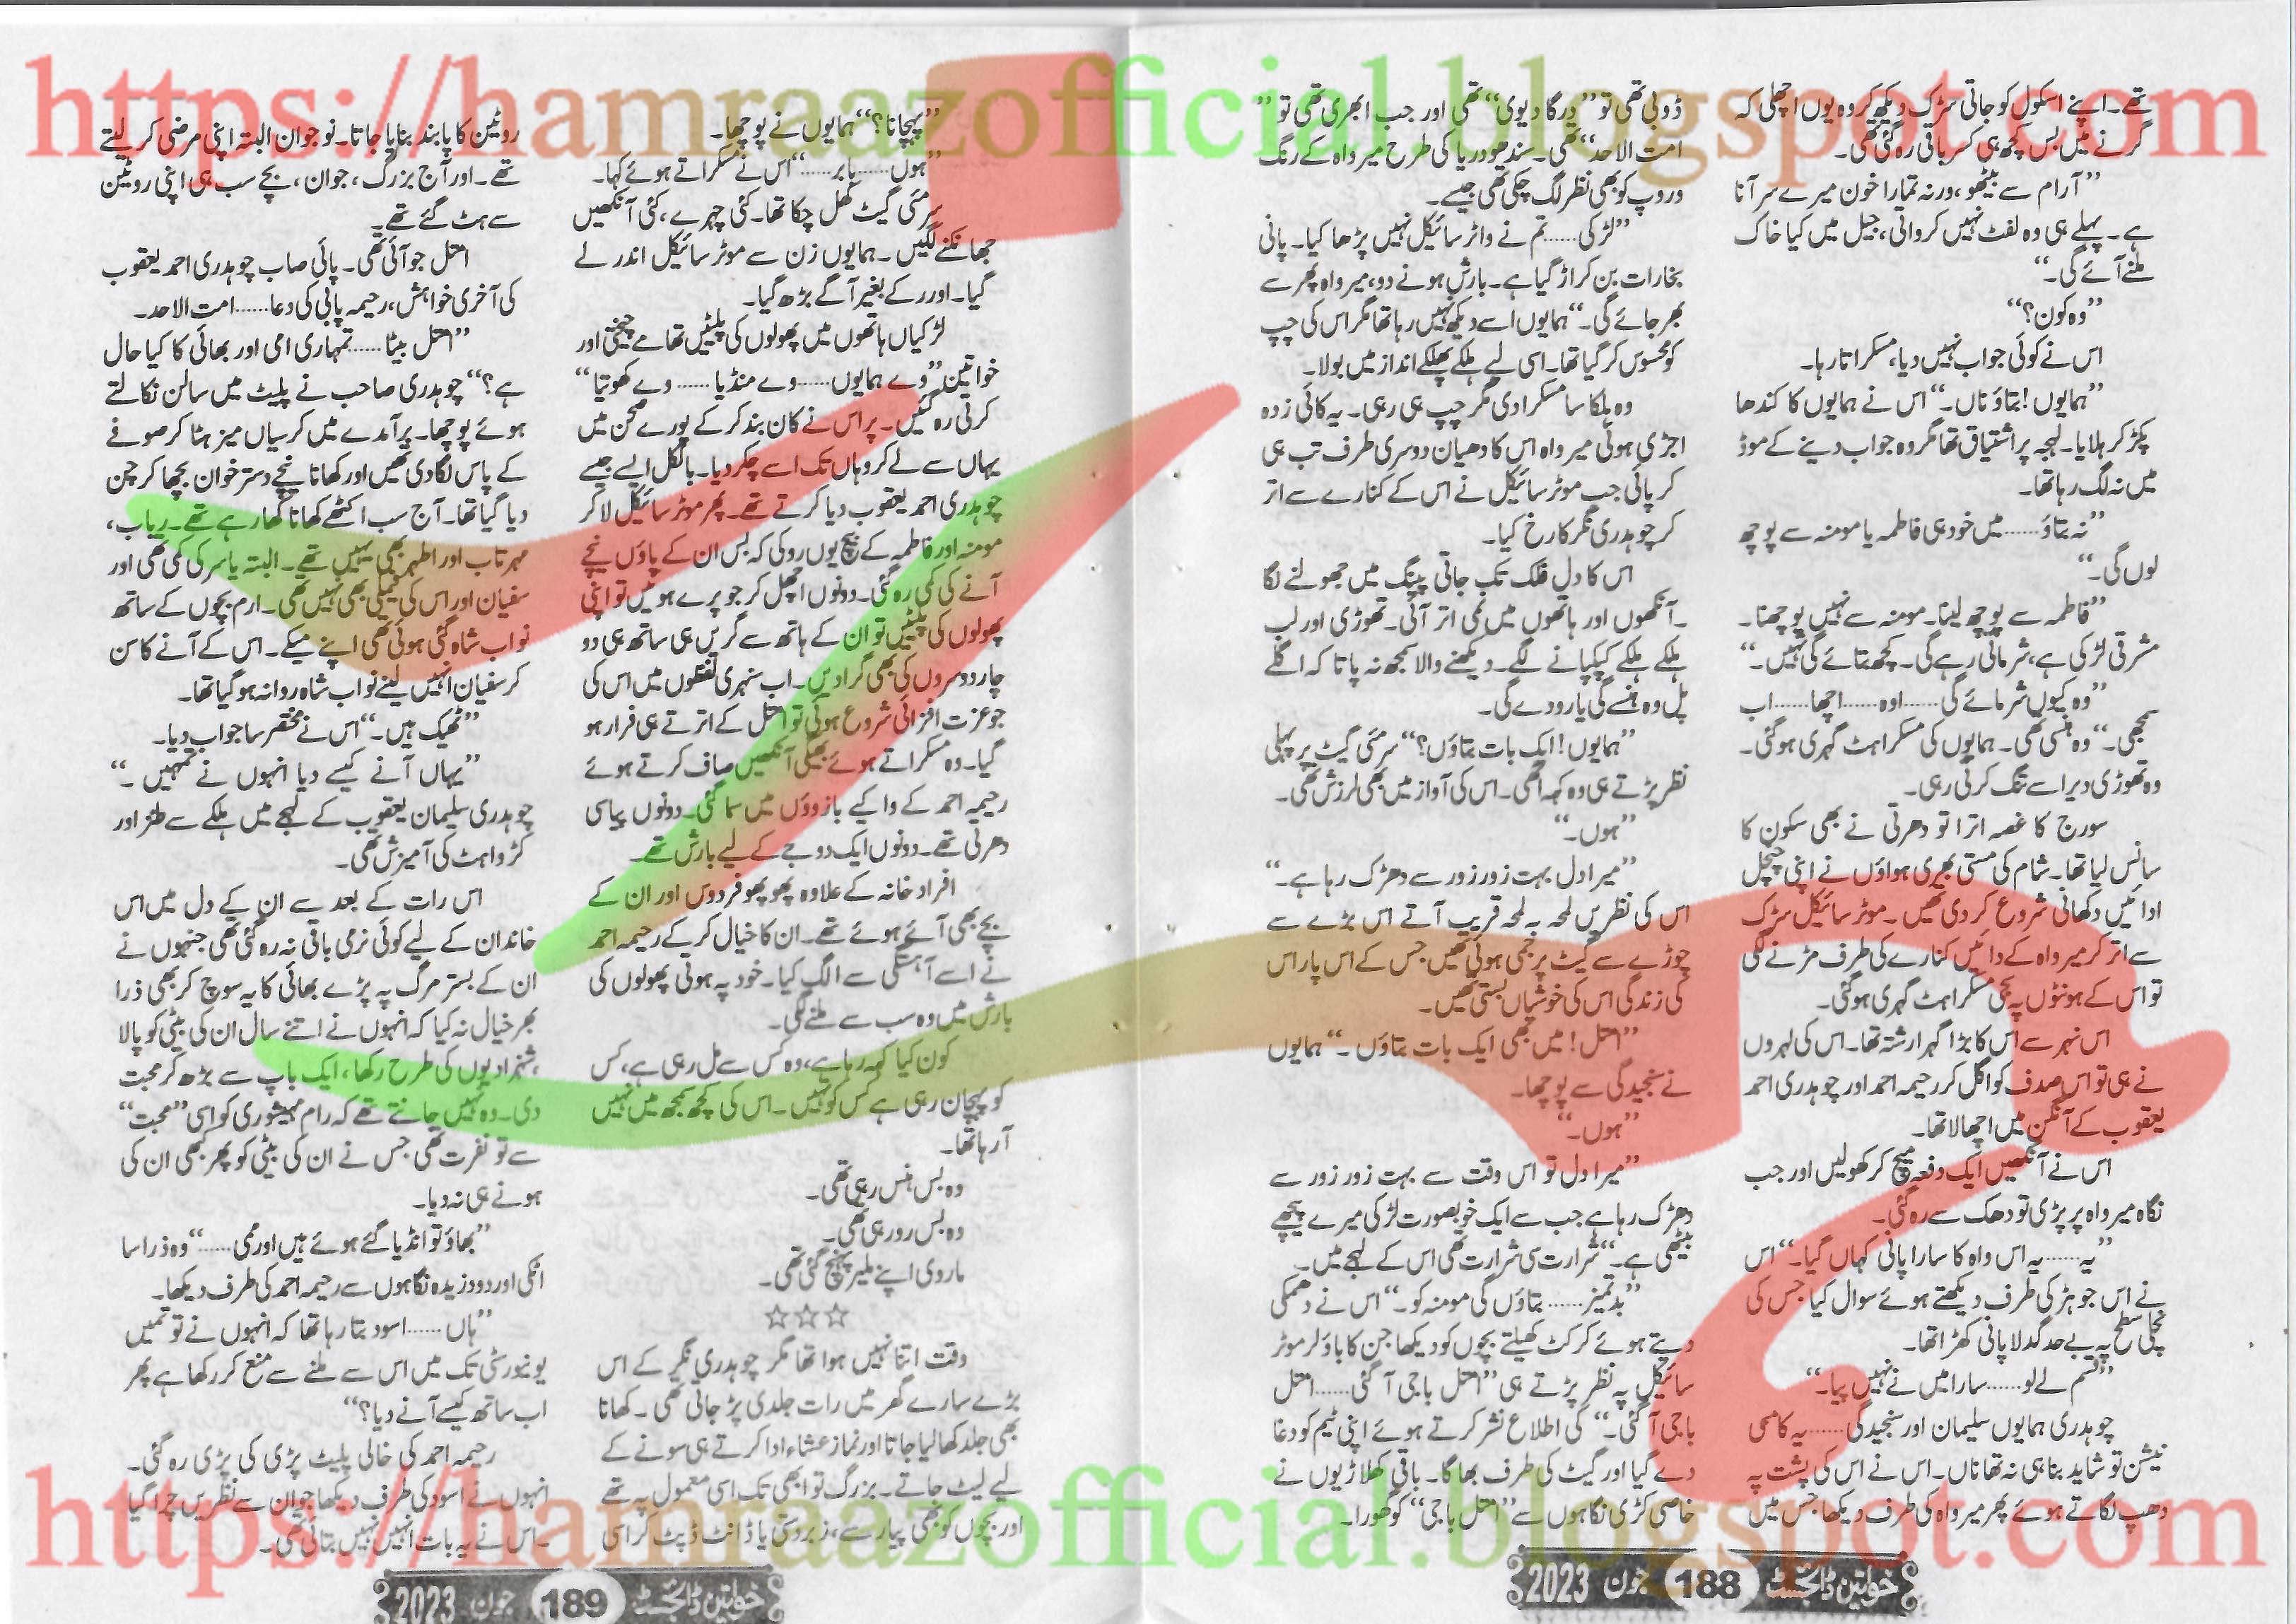 https://hamraazofficial.blogspot.com
تھے۔ اپنے اسکول کو جاتی سڑک دیکھ کر وہ یوں اچھلی کہ
گرنے میں بس کچھ ہی کسر باقی رہ گئی تھی۔
”آرام سے بیٹھو، ورنہ تمہارا خون میرے سر آنا
ہے۔ پہلے ہی وہ لفٹ نہیں کرواتی، جیل میں کیا خاک
ملنے آئے گی۔“
”وہ کون؟“
اس نے کوئی جواب نہیں دیا، مسکراتا رہا۔
”ہمایوں! بتاؤ ناں۔“ اس نے ہمایوں کا کندھا
پکڑ کر ہلایا۔ لہجہ پر اشتیاق تھا مگر وہ جواب دینے کے موڈ
میں نہ لگ رہا تھا۔
”نہ بتاؤ...... میں خود ہی فاطمہ یا مومنہ سے پوچھ
لوں گی۔“
”فاطمہ سے پوچھ لینا۔ مومنہ سے نہیں پوچھنا۔
مشرقی لڑکی ہے، شرماتی رہے گی۔ کچھ بتائے گی نہیں۔“
”وہ کیوں شرمائے گی...... اوہ...... اچھا...... اب
سمجھی۔“ وہ ہنسی تھی۔ ہمایوں کی مسکراہٹ گہری ہو گئی۔
وہ تھوڑی دیر اسے تنگ کرتی رہی۔
سورج کا غصہ اترا تو دھرتی نے بھی سکون کا
سانس لیا تھا۔ شام کی مستی بھری ہواؤں نے اپنی چنچل
ادائیں دکھانی شروع کر دی تھیں۔ موٹر سائیکل سڑک
سے اتر کر میر واہ کے دائیں کنارے کی طرف مڑنے لگی
تو اس کے ہونٹوں پہ سجی مسکراہٹ گہری ہو گئی۔
اس نہر سے اس کا بڑا گہرا رشتہ تھا۔ اس کی لہروں
نے ہی تو اس صدف کو اگل کر رحیمہ احمد اور چوہدری احمد
یعقوب کے آنگن میں اچھالا تھا۔
اس نے آنکھیں ایک دفعہ میچ کر کھولیں اور جب
نگاہ میر واہ پر پڑی تو دھک سے رہ گئی۔
”یہ...... یہ اس واہ کا سارا پانی کہاں گیا۔“ اس
نے اس جوہڑ کی طرف دیکھتے ہوئے سوال کیا جس کی
نچلی سطح پہ بے حد گدلا پانی کھڑا تھا۔
”قسم لے لو...... سارا میں نے نہیں پیا۔“
چوہدری ہمایوں سلیمان اور سنجیدگی...... یہ کامبی
نیشن تو شاید بنا ہی نہ تھا ناں۔ اس نے اس کی پشت پہ
دھپ لگاتے ہوئے پھر میر واہ کی طرف دیکھا جس میں
ڈوبی تھی تو ”درگا دیوی“ تھی اور جب ابھری تھی تو ”
امت الاحد“ تھی۔ سندھو دریا کی طرح میر واہ کے رنگ
و روپ کو بھی نظر لگ چکی تھی جیسے۔
”لڑکی...... تم نے واٹر سائیکل نہیں پڑھا کیا۔ پانی
بخارات بن کر اڑ گیا ہے۔ بارش ہونے دو، میر واہ پھر سے
بھر جائے گی۔“ ہمایوں اسے دیکھ نہیں رہا تھا مگر اس کی چپ
کو محسوس کر گیا تھا۔ اسی لیے ہلکے پھلکے انداز میں بولا۔
وہ ہلکا سا مسکرا دی مگر چپ ہی رہی۔ یہ کائی زدہ
اجڑی ہوئی میر واہ اس کا دھیان دوسری طرف تب ہی
کر پائی جب موٹر سائیکل نے اس کے کنارے سے اتر
کر چوہدری نگر کا رخ کیا۔
اس کا دل فلک تک جاتی پینگ میں جھولنے لگا
۔ آنکھوں اور ہاتھوں میں نمی اتر آئی۔ تھوڑی اور لب
ہلکے ہلکے کپکپانے لگے۔ دیکھنے والا سمجھ نہ پاتا کہ اگلے
پل وہ ہنسے گی یا رو دے گی۔
”ہمایوں! ایک بات بتاؤں؟“ سرمئی گیٹ پر پہلی
نظر پڑتے ہی وہ کہہ اٹھی۔ اس کی آواز میں بھی لرزش تھی۔
”ہوں۔“
”میرا دل بہت زور زور سے دھڑک رہا ہے۔“
اس کی نظریں لمحہ بہ لمحہ قریب آتے اس بڑے سے
چوڑے سے گیٹ پر جمی ہوئی تھیں جس کے اس پار اس
کی زندگی اس کی خوشیاں بستی تھیں۔
”امتل! میں بھی ایک بات بتاؤں۔“ ہمایوں
نے سنجیدگی سے پوچھا۔
”ہوں۔“
”میرا دل تو اس وقت سے بہت زور زور سے
دھڑک رہا ہے جب سے ایک خوبصورت لڑکی میرے پیچھے
بیٹھی ہے۔“ شرارت سی شرارت تھی اس کے لہجے میں۔
”بدتمیز...... بتاؤں گی مومنہ کو۔“ اس نے دھمکی
دیتے ہوئے کرکٹ کھیلتے بچوں کو دیکھا جن کا باؤلر موٹر
سائیکل پہ نظر پڑتے ہی ”امتل باجی آ گئی...... امتل
باجی آ گئی۔“ کی اطلاع نشر کرتے ہوئے اپنی ٹیم کو دغا
دے گیا اور گیٹ کی طرف بھاگا۔ باقی کھلاڑیوں نے
خاصی کڑی نگاہوں سے ”امتل باجی“ کو گھورا۔
خواتین ڈائجسٹ 188 جون 2023
”پہچانا؟“ ہمایوں نے پوچھا۔
”ہوں...... بابر......“ اس نے مسکراتے ہوئے کہا۔
سرمئی گیٹ کھل چکا تھا۔ کئی چہرے، کئی آنکھیں
جھانکنے لگیں۔ ہمایوں زن سے موٹر سائیکل اندر لے
گیا۔ اور رکے بغیر آگے بڑھ گیا۔
لڑکیاں ہاتھوں میں پھولوں کی پلیٹیں تھامے چیختی اور
خواتین ”وے ہمایوں...... وے منڈیا...... وے کھوتیا“
کرتی رہ گئیں۔ پر اس نے کان بند کر کے پورے صحن میں
یہاں سے لے کر وہاں تک اسے چکر دیا۔ بالکل ایسے جیسے
چوہدری احمد یعقوب دیا کرتے تھے۔ پھر موٹر سائیکل لا کر
مومنہ اور فاطمہ کے بیچ یوں روکی کہ بس ان کے پاؤں نیچے
آنے کی کمی رہ گئی۔ دونوں اچھل کر جو پرے ہوئیں تو اپنی
پھولوں کی پلیٹیں تو ان کے ہاتھ سے گریں ہی ساتھ ہی دو
چار دوسروں کی بھی گرا دیں۔ اب سنہری لفظوں میں اس کی
جو عزت افزائی شروع ہوئی تو امتل کے اترتے ہی فرار ہو
گیا۔ وہ مسکراتے ہوئے بھیگی آنکھیں صاف کرتے ہوئے
رحیمہ احمد کے وا کیے بازوؤں میں سما گئی۔ دونوں پیاسی
دھرتی تھے۔ دونوں ایک دوجے کے لیے بارش تھے۔
افراد خانہ کے علاوہ پھوپھو فردوس اور ان کے
بچے بھی آئے ہوئے تھے۔ ان کا خیال کر کے رحیمہ احمد
نے اسے آہستگی سے الگ کیا۔ خود پہ ہوتی پھولوں کی
بارش میں وہ سب سے ملنے لگی۔
کون کیا کہہ رہا ہے، وہ کس سے مل رہی ہے، کس
کو پہچان رہی ہے کس کو نہیں۔ اس کی کچھ سمجھ میں نہیں
آ رہا تھا۔
وہ بس ہنس رہی تھی۔
وہ بس رو رہی تھی۔
ماروی اپنے ملیر پہنچ گئی تھی۔
☆☆☆
وقت اتنا نہیں ہوا تھا مگر چوہدری نگر کے اس
بڑے سارے گھر میں رات جلدی پڑ جاتی تھی۔ کھانا
بھی جلد کھا لیا جاتا اور نماز عشاء ادا کرتے ہی سونے کے
لیے لیٹ جاتے۔ بزرگ تو ابھی تک اسی معمول پہ تھے
اور بچوں کو بھی پیار سے، زبردستی یا ڈانٹ ڈپٹ کر اسی
روٹین کا پابند بنایا جاتا۔ نوجوان البتہ اپنی مرضی کر لیتے
تھے۔ اور آج بزرگ، جوان، بچے سب ہی اپنی روٹین
سے ہٹ گئے تھے۔
امتل جو آئی تھی۔ پائی صاب چوہدری احمد یعقوب
کی آخری خواہش، رحیمہ پائی کی دعا...... امت الاحد۔
”امتل بیٹا...... تمہاری امی اور بھائی کا کیا حال
ہے؟“ چوہدری صاحب نے پلیٹ میں سالن نکالتے
ہوئے پوچھا۔ برآمدے میں کرسیاں میز ہٹا کر صوفے
کے پاس لگا دی تھیں اور کھانا نیچے دسترخوان بچھا کر چن
دیا گیا تھا۔ آج سب اکٹھے کھانا کھا رہے تھے۔ رباب،
مہرتاب اور اطہر بھی یہیں تھے۔ البتہ یاسر کی کمی تھی اور
سفیان اور اس کی فیملی بھی نہیں تھی۔ ارم بچوں کے ساتھ
نواب شاہ گئی ہوئی تھی اپنے میکے۔ اس کے آنے کا سن
کر سفیان انہیں لینے نواب شاہ روانہ ہو گیا تھا۔
”ٹھیک ہیں۔“ اس نے مختصر سا جواب دیا۔
”یہاں آنے کیسے دیا انہوں نے تمہیں۔“
چوہدری سلیمان یعقوب کے لہجے میں ہلکے سے طنز اور
کڑواہٹ کی آمیزش تھی۔
اس رات کے بعد سے ان کے دل میں اس
خاندان کے لیے کوئی نرمی باقی نہ رہ گئی تھی جنہوں نے
ان کے بستر مرگ پہ پڑے بھائی کا یہ سوچ کر بھی ذرا
بھر خیال نہ کیا کہ انہوں نے اتنے سال ان کی بیٹی کو پالا
، شہزادیوں کی طرح رکھا، ایک باپ سے بڑھ کر محبت
دی۔ وہ نہیں جانتے تھے کہ رام مہیشوری کو اسی ”محبت“
سے تو نفرت تھی جس نے ان کی بیٹی کو پھر بھی ان کی
ہونے ہی نہ دیا۔
”بھاؤ تو انڈیا گئے ہوئے ہیں اور ممی......“ وہ ذرا سا
اٹکی اور دزدیدہ نگاہوں سے رحیمہ احمد کی طرف دیکھا۔
”ہاں...... اسود بتا رہا تھا کہ انہوں نے تو تمہیں
یونیورسٹی تک میں اس سے ملنے سے منع کر رکھا ہے پھر
اب ساتھ کیسے آنے دیا؟“
رحیمہ احمد کی خالی پلیٹ پڑی کی پڑی رہ گئی۔
انہوں نے اسود کی طرف دیکھا جو ان سے نظریں چرا گیا
۔ اس نے یہ بات انہیں نہیں بتائی تھی۔
خواتین ڈائجسٹ 189 جون 2023
https://hamraazofficial.blogspot.com